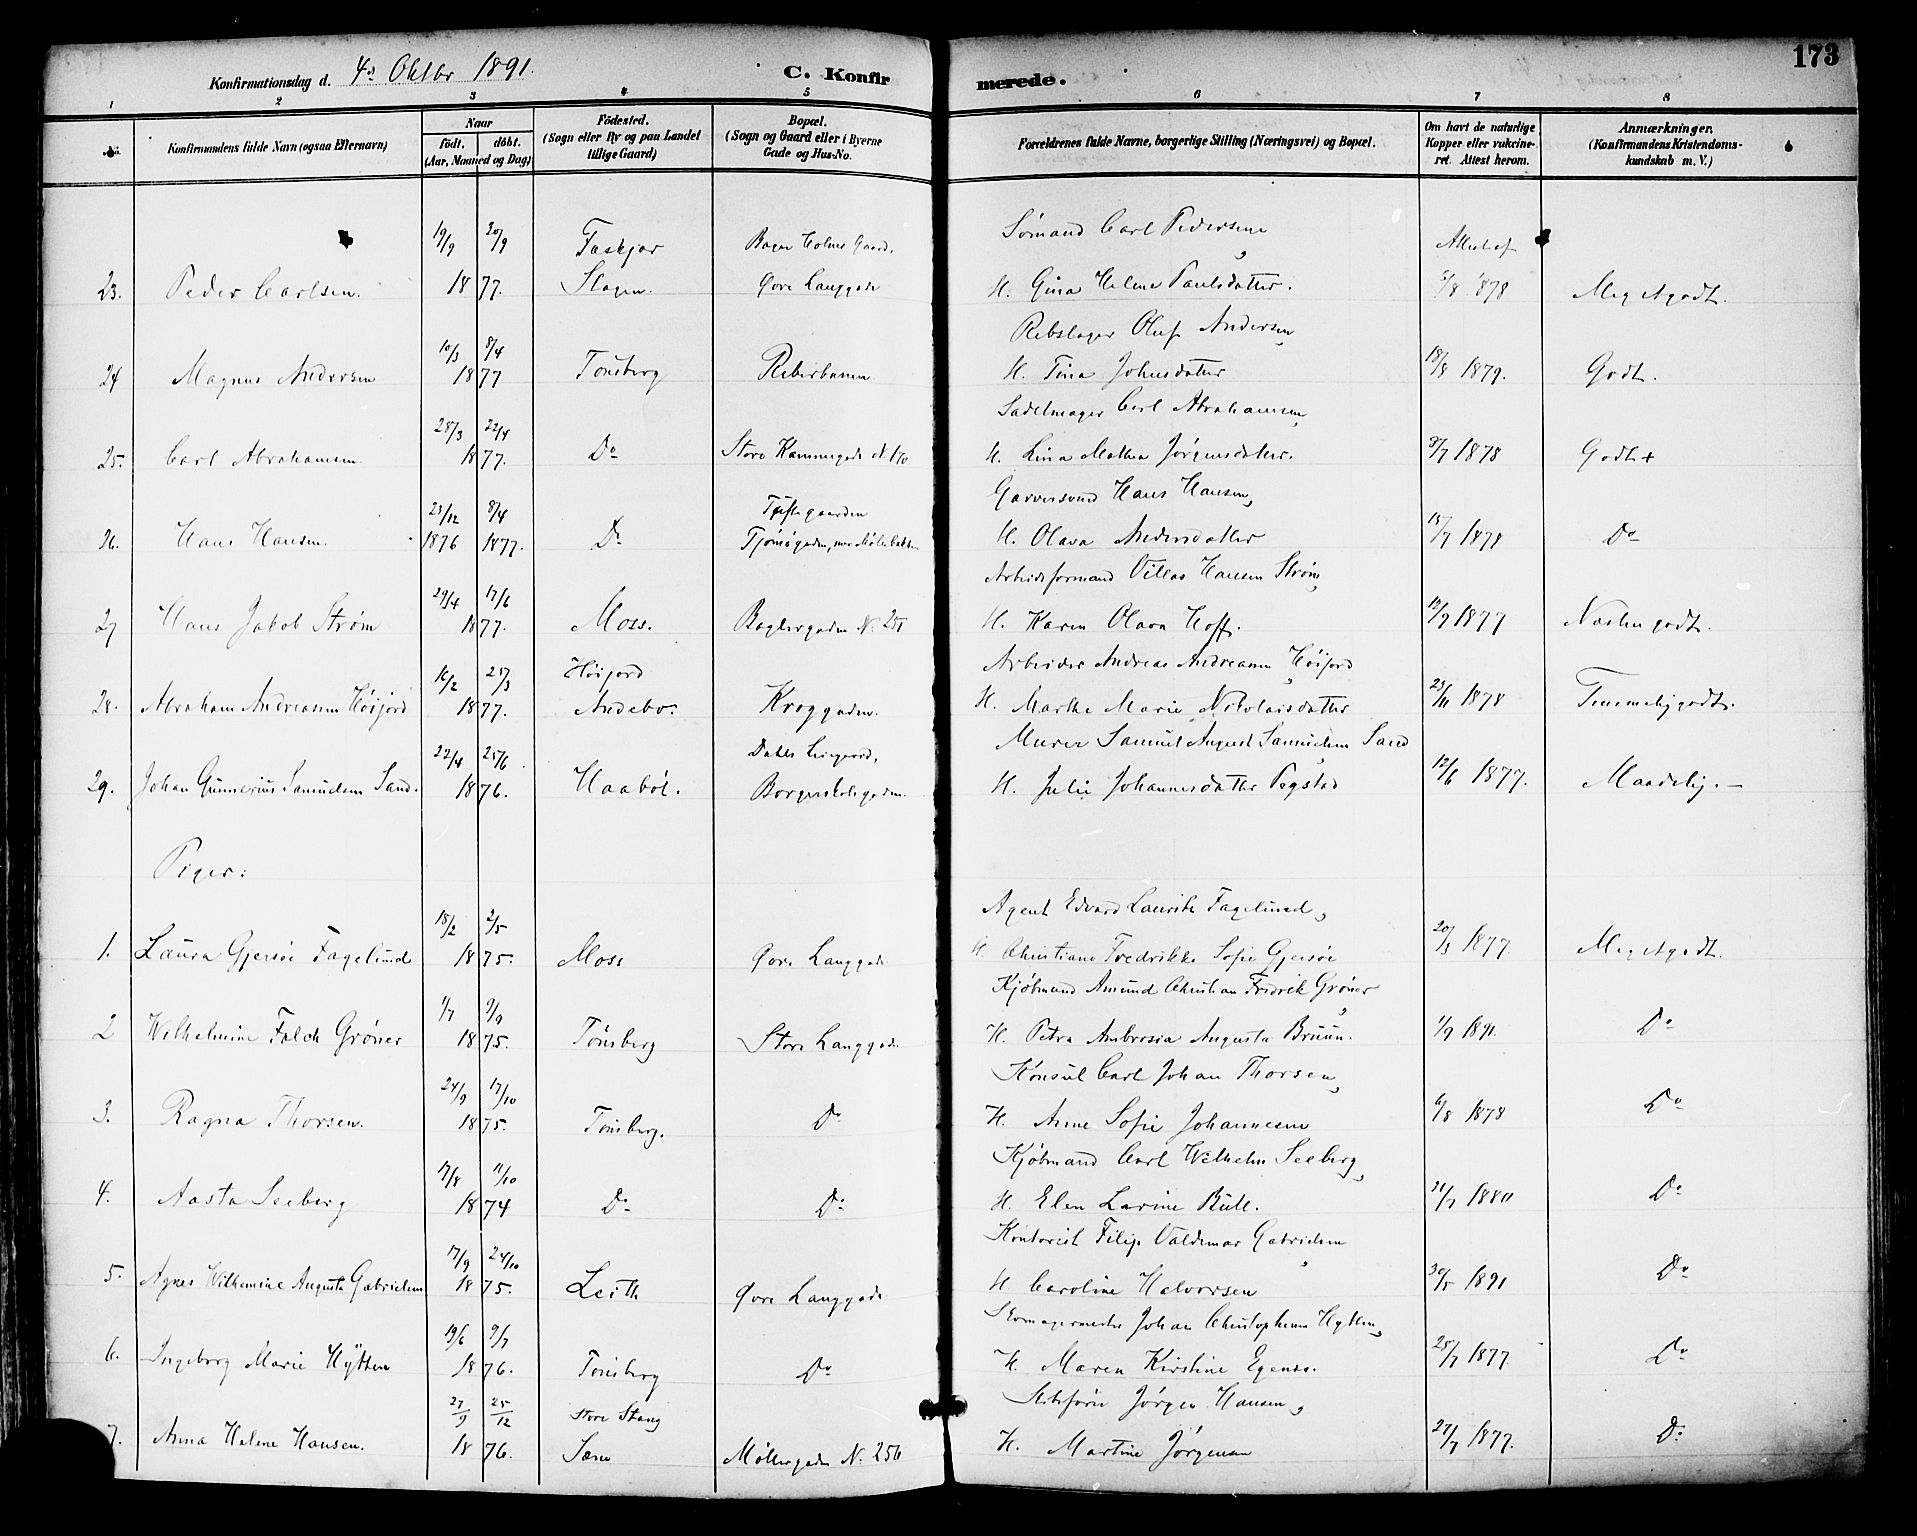 173
Konfirmationsdag d. 4de Oktbr 1891.
C. Konfirmerede.
1 2 3 4 5 6 7 8
No.
Konfirmandens fulde Navn (ogsaa Efternavn)
Naar
født. døbt.
(Aar, Maaned og Dag)
Fødested.
(Sogn eller By og paa Landet
tillige Gaard)
Bopæl.
(Sogn og Gaard eller i Byerne
Gade og Hus-No.
Forældrenes fulde Navne, borgerlige Stilling (Næringsvei) og Bopæl.
Om havt de naturlige
Kopper eller vakcine-
ret. Attest herom.
Anmærkninger.
(Konfirmandens Kristendoms-
kundskab m. V.)
19/9 20/9 Holms Gaard, Sømand Carl Pedersen, Attest af
23. Peder Carlsen. 1877. Slagen. Øvre Langgade H. Gina Helene Paulsdatter. 5/8 1878 Meget godt.
10/3 8/4 Rebslager Oluf Andersen,
24 Magnus Andersen 1877 Tønsberg Reberbanen H. Tina Johnsdatter 18/8 1879. Godt.
28/3 22/4 Sadelmager Carl Abrahamsen,
25. Carl Abrahamsen 1877. Do Store Kammegade N. 170 H. Lina Mathea Jørgensdatter. 3/7 1878 Godt +
23/12 8/4 Garversvend Hans Hansen,
26. Hans Hansen. 1876 1877. Do Tjømøgaden, H. Olava Andersdatter 15/7 1878 Do
29/4 17/6 Arbeidsformand Hansen Strøm,
27 Hans Jakob Strøm 1877. Moss. Baglergaden N. 251 H. Karen Olava Hoff. 12/9 1877 Næsten godt.
16/2 25/3 Høijord Arbeider Andreas Andreasen Høijord,
28. Abraham Andreasen Høijord 1877. Andebo. Kroggaden. H. Marthe Marie Nikolaisdatter 23/11 1878 Temmelig godt.
22/4 25/6 Murer Samuel August Samuelsen Sand
29. Johan Gunnerius Samuelsen Sand. 1876. Haabøl. Borgerskolegaden. H. Julie Johannesdatter Pegstad 12/6 1877. Maadelig. –
Piger:
18/2 2/5 Agent Edvard Lauritz Fagelund,
1. Laura Gjersøe Fagelund 1875. Moss Øvre Langgade H. Christiane Fredrikke Sofie Gjersøe 20/3 1877 Meget godt.
1/7 9/9 Kjøbmand Amund Christian Fredrik Grøner,
2 Wilhelmine Falch Grøner 1875. Tønsberg Store Langgade H. Petra Ambrosia Augusta Bruun. 1/9 1891. Do
24/9 17/10 Konsul Carl Johan Thorsen,
3. Ragna Thorsen. 1875. Tønsberg. Do H. Anne Sofie Johannesen 6/8 1878 Do
17/8 11/10 Kjøbmand Carl Wilhelm Seeberg,
4. Aasta Seeberg 1874 Do Do H. Elen Larine Bull. 21/7 1880 Do
17/9 24/10 Kontorist Filip Valdemar Gabrielsen,
5. Agnes Wilhemine Augusta Gabrielsen 1875. Leith Øvre Langgade H. Caroline Halvorsen 30/5 1891 Do
19/6 9/7 Skomagermester Johan Christophersen Hytten,
6. Ingeborg Marie Hytten 1876. Tønsberg Do H. Maren Kirstine Egenes. 25/7 1877 Do
27/9 25/12 Store Stang Skibsfører Jørgen Hansen,
7. Anna Helene Hansen. 1876. Sæm Møllergaden N. 256 H. Martine Jørgensen 27/7 1877. Do